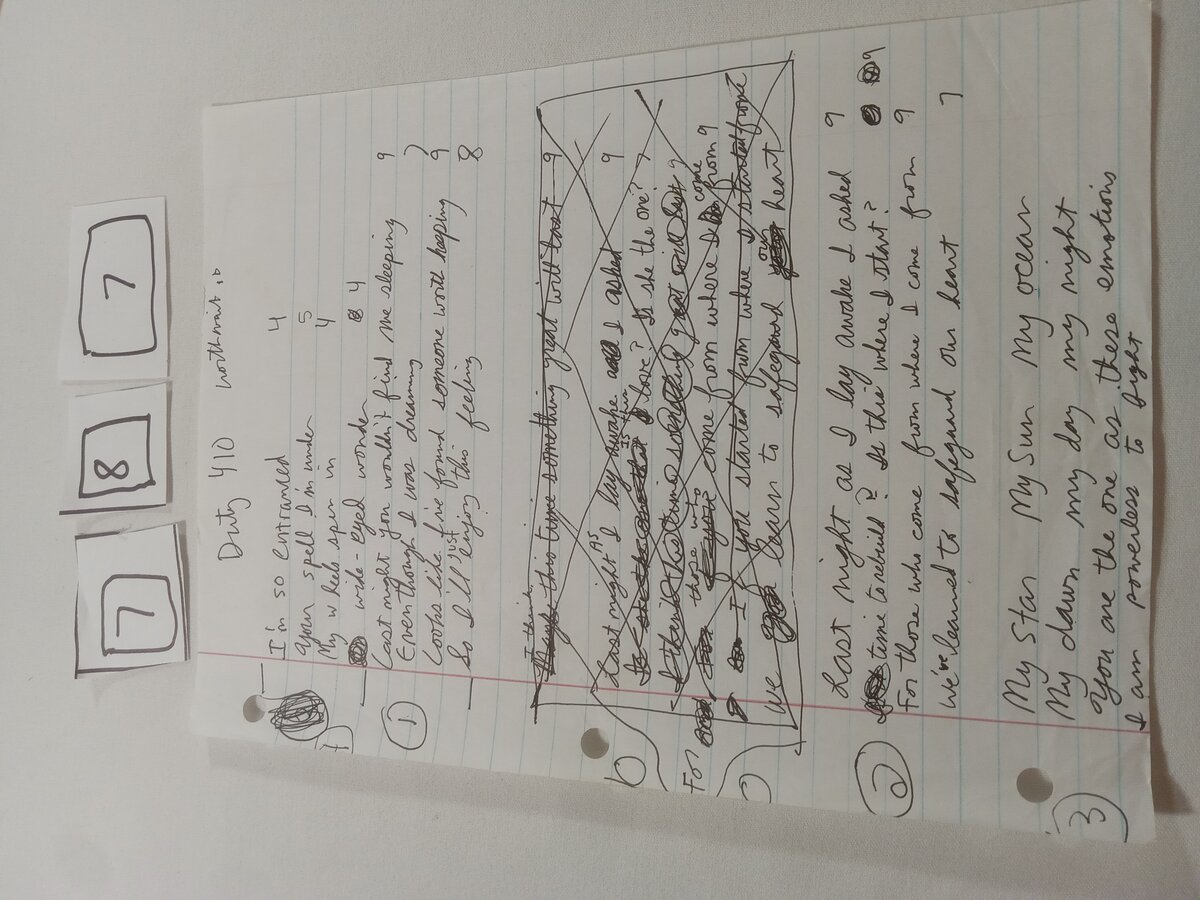 7
8
7
Duty 410
I'm so entranced 4
Your spell I'm under 5
My wheels spin in 4
wide-eyed wonder 4
1
Last night you wouldn't find me sleeping 9
Even though I was dreaming 7
Looks like I've found someone worth keeping 9
So I'll just enjoy this feeling 8
I think
this time something great will last 9
Last night As I lay awake I asked 9
Is this love? Is she the one? 7
I think this time something great will last 9
For those who come from where I come from 9
I you started from where I started from
We learn to safeguard our heart
2
Last night as I lay awake I asked 9
time to rebuild? Is this where I start? 9
For those who come from where I come from 9
We've learned to safeguard our heart 7
3
My Star My Sun My ocean
My dawn my day my night
You are the one as these emotions
I am powerless to fight